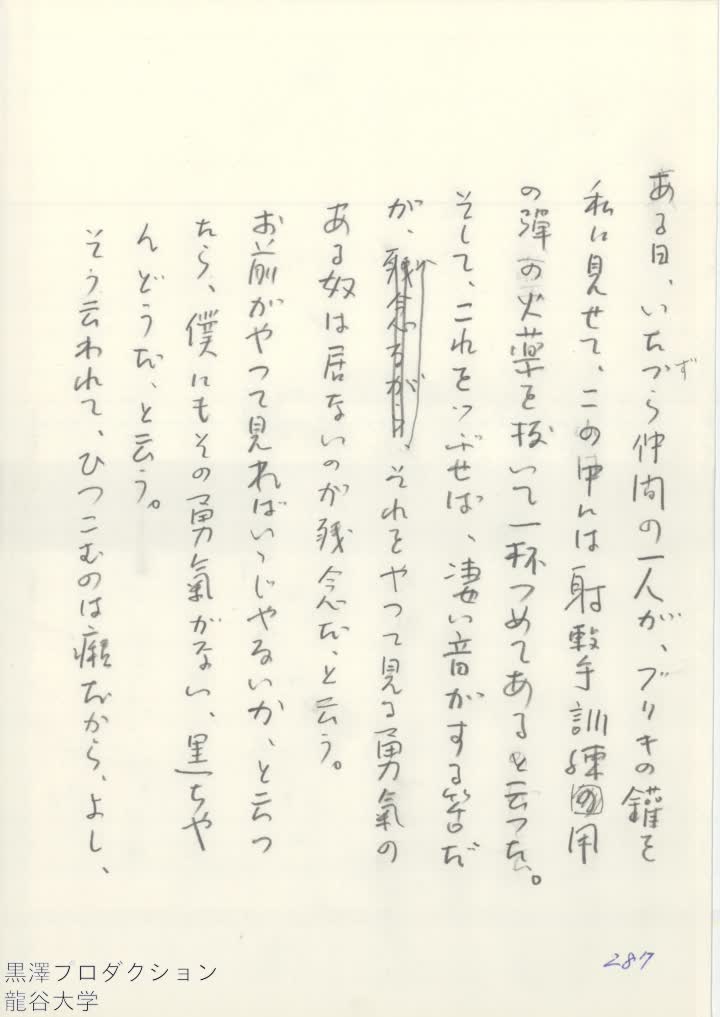 ある日、いたづら仲間の一人が、ブリキの鑵を
ず
私に見せて、この中には射撃手訓練用
の弾の火薬を抜いて一杯つめてあると云つた。
そして、これをつぶせば、凄い音がする筈だ
が、残念ながら、それをやつて見る勇氣の
ある奴は居ないのが残念だ、と云う。
お前がやつて見ればいゝじやないか、と云つ
たら、僕にもその勇氣がない、黒ちや
んどうだ、と云う。
そう云われて、ひつこむのは癪だから、よし、
287
黒澤プロダクション
龍谷大学